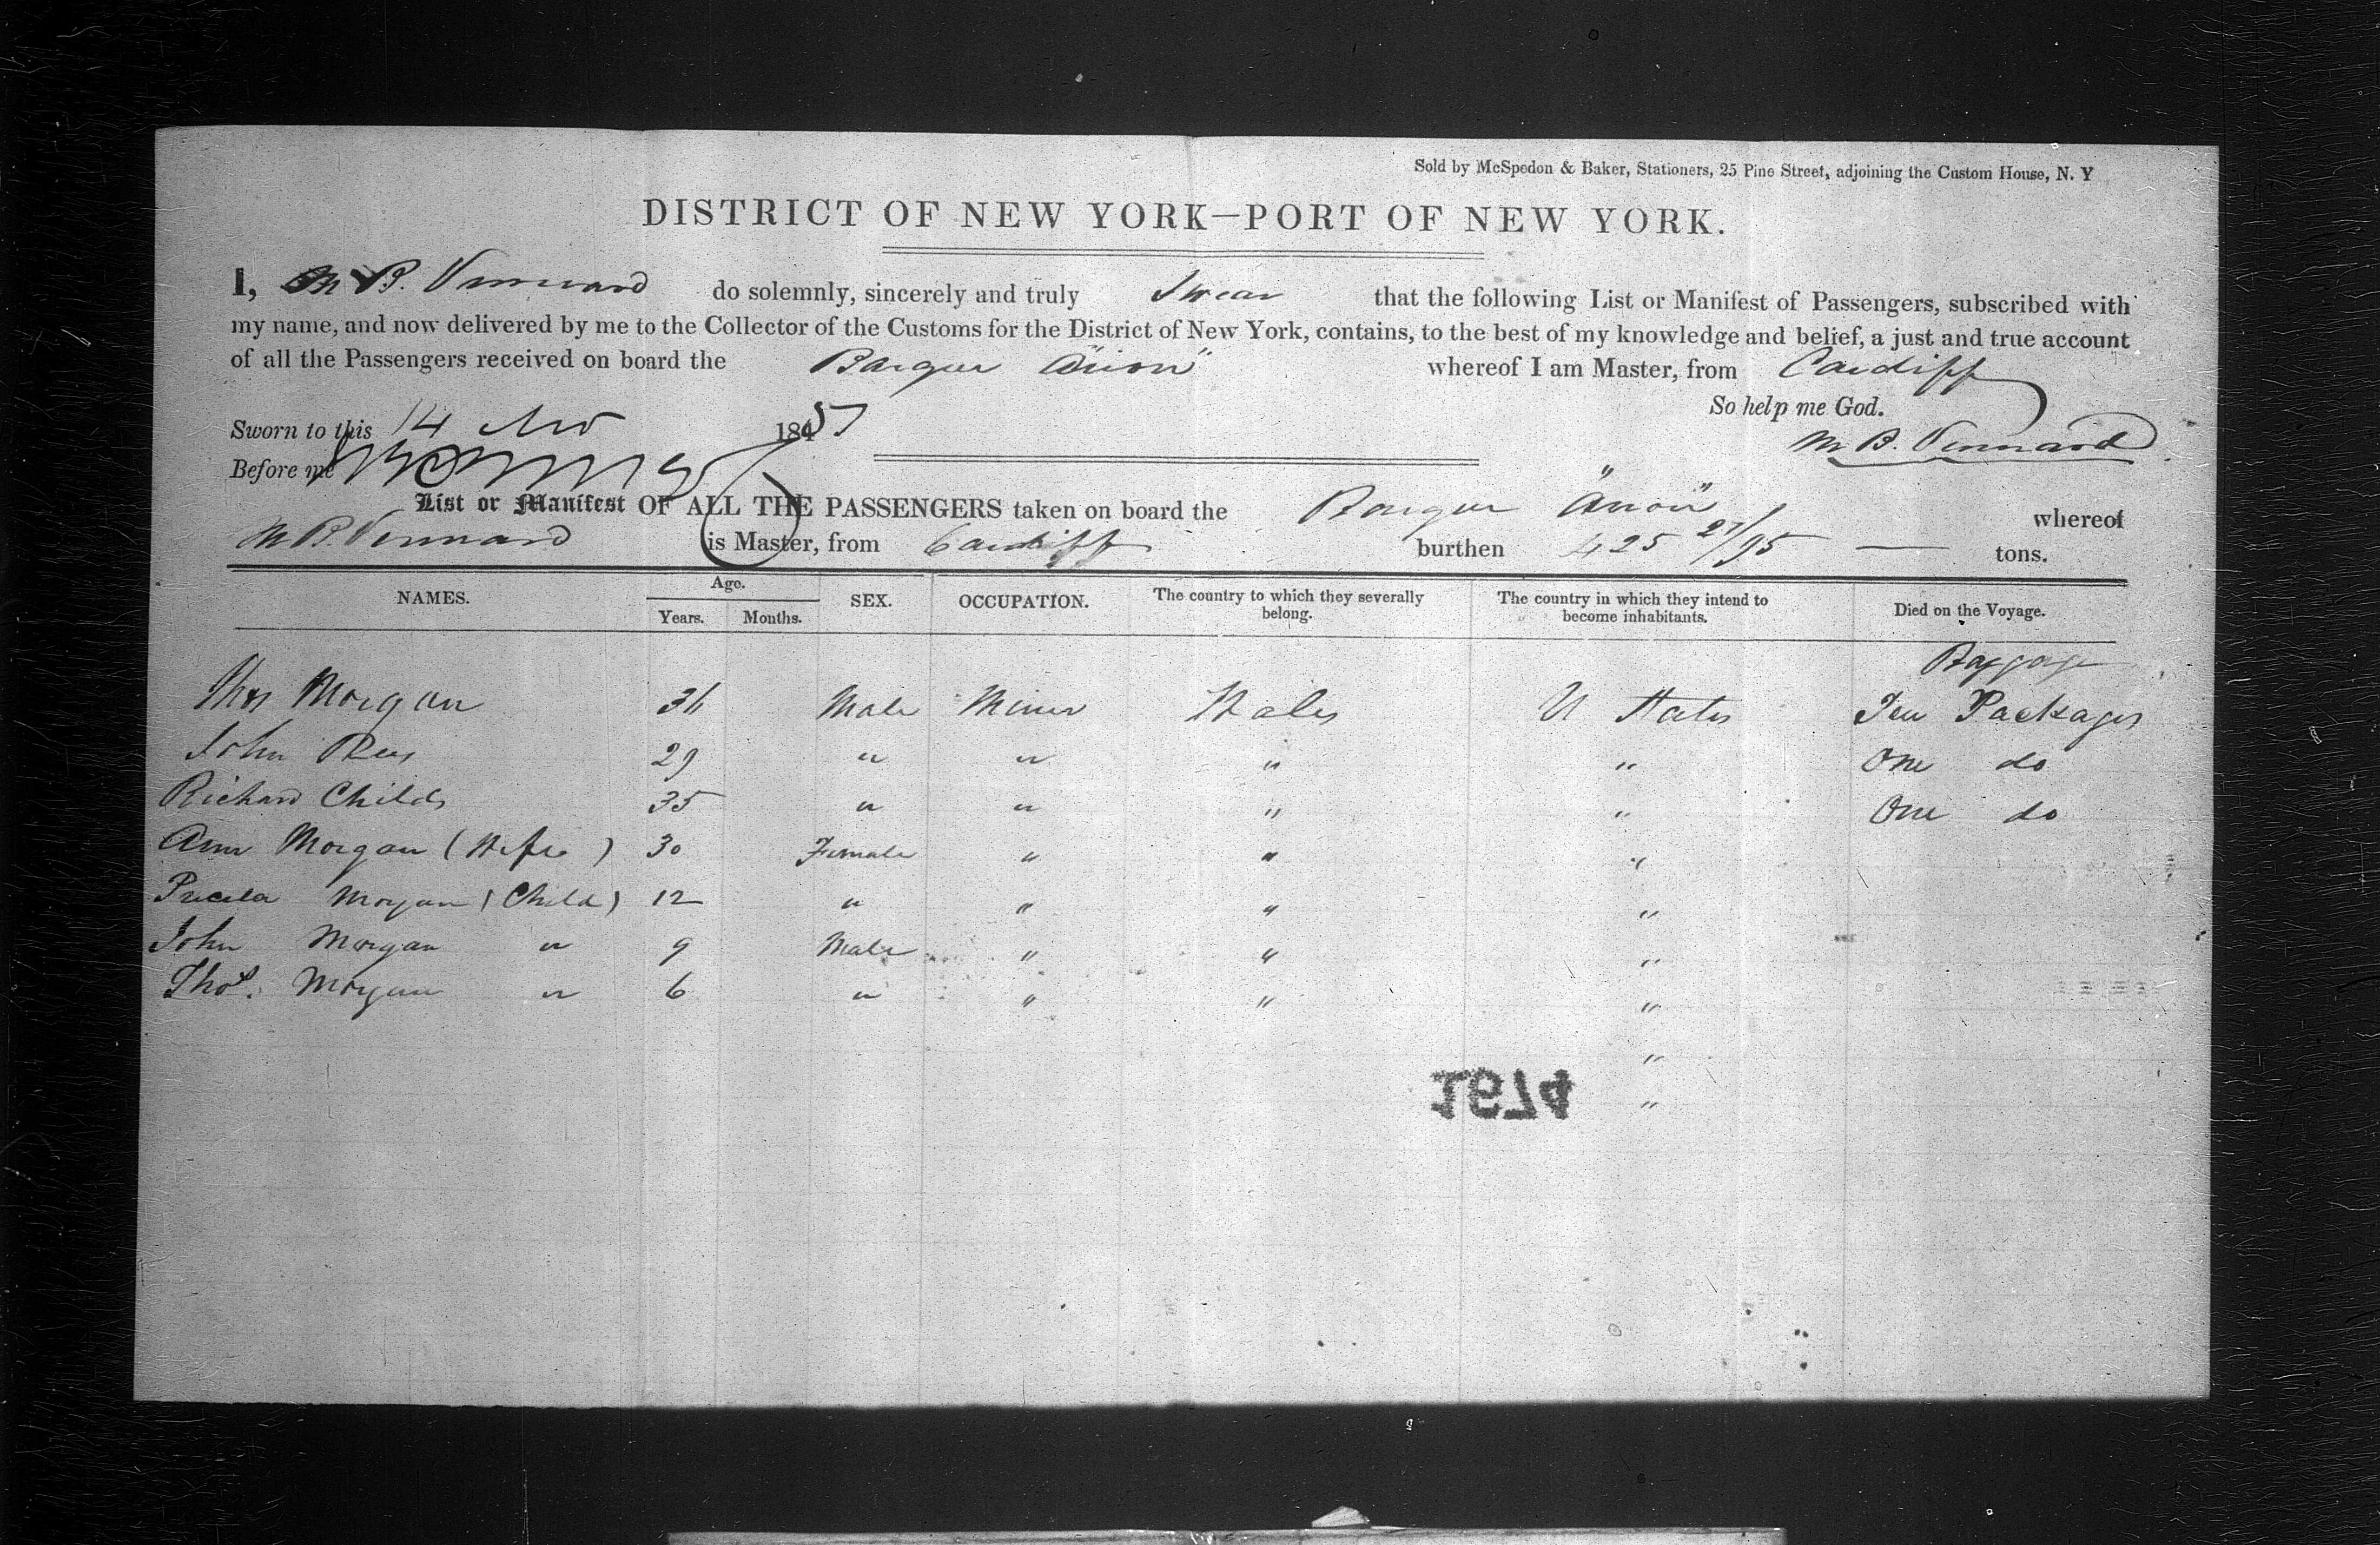 Sold by McSpedon & Baker, Stationers, 25 Pine Street, adjoining the Custom House, N. Y
DISTRICT OF NEW YORK—PORT OF NEW YORK.
I, M B. Vennard do solemnly, sincerely and truly Swear that the following List or Manifest of Passengers, subscribed with
my name, and now delivered by me to the Collector of the Customs for the District of New York, contains, to the best of my knowledge and belief, a just and true account
of all the Passengers received on board the Barque whereof I am Master, from Cardiff
So help me God.
Sworn to this 14 Nov 1851
M B. Vennard
Before me
List or Manifest OF ALL THE PASSENGERS taken on board the Barque whereof
M B. Vennard is Master, from Cardiff burthen 425 27/95 tons.
NAMES. Age. Years. Months. SEX. OCCUPATION. The country to which they severally belong. The country in which they intend to become inhabitants. Died on the Voyage.
Baggage
Thos Morgan 36 Male Miner Wales U States Ten Packages
John Rees 29 " " " " One do
Richard Childs 35 " " " " One do
Ann Morgan (Wife) 30 Female " " "
Morgan (Child) 12 " " " "
John Morgan " 9 Male " " "
Thos. Morgan " 6 " " " "
"
"
1674